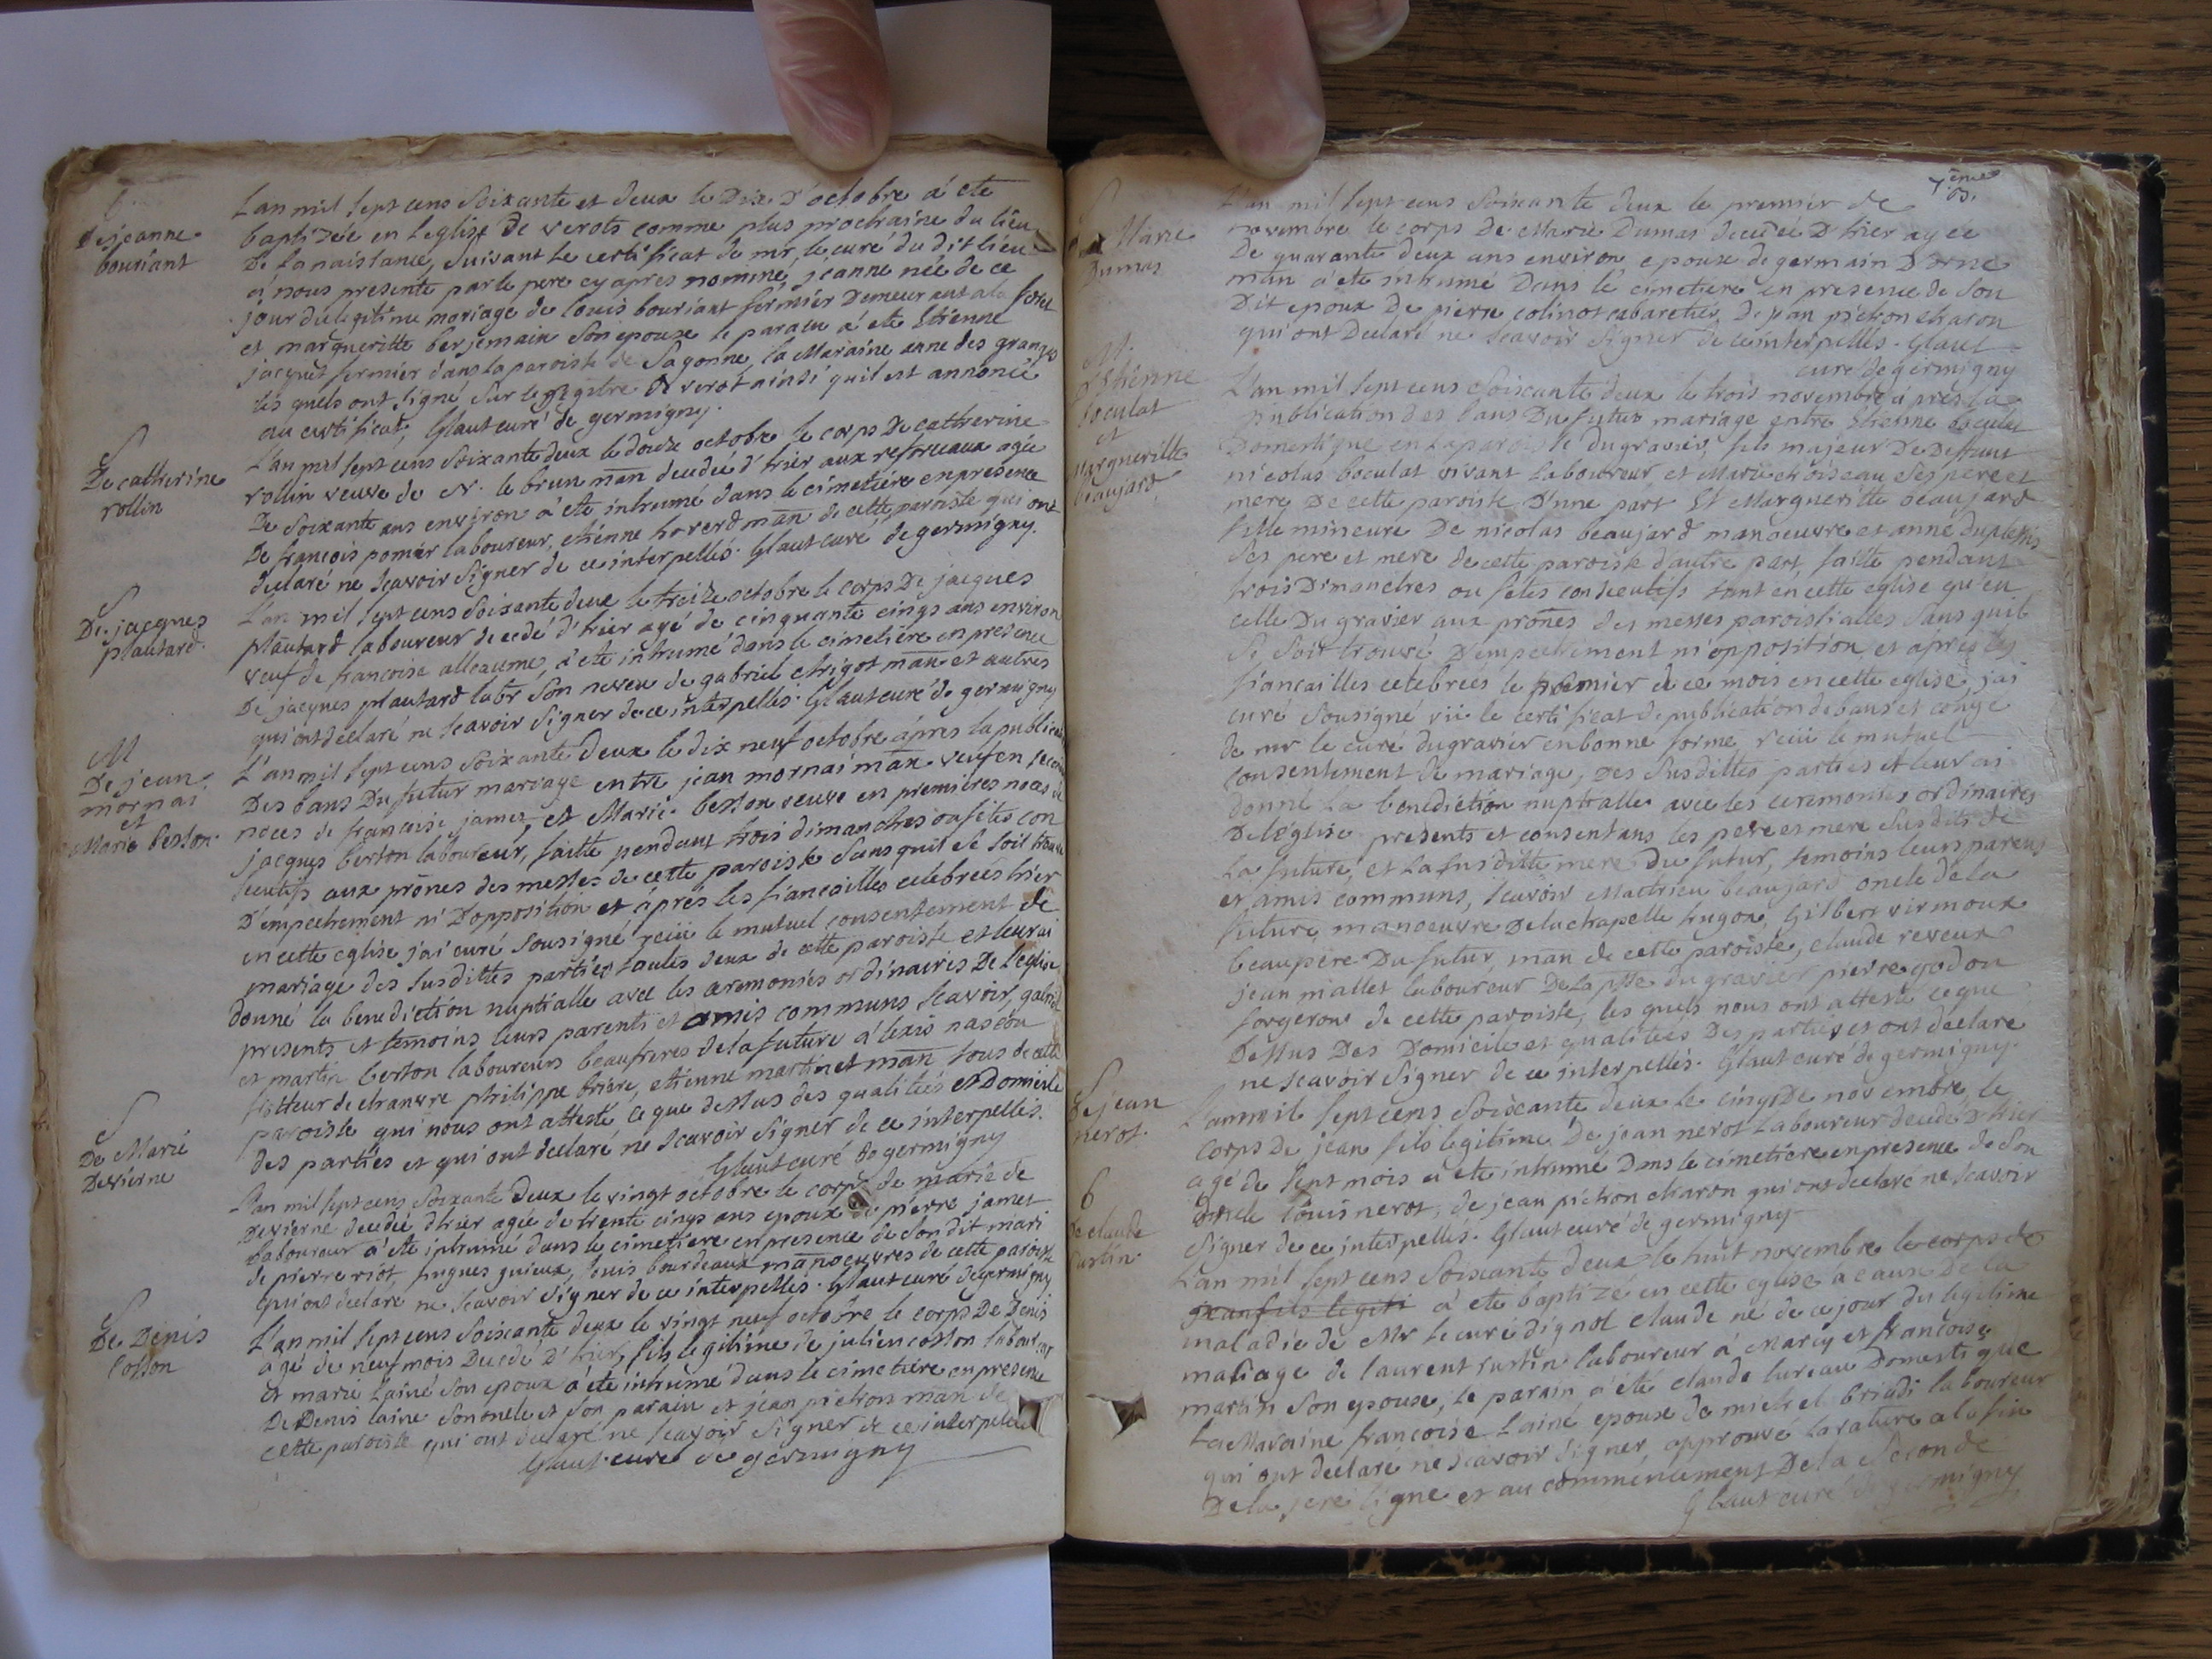 B
De jeanne
bouriant
L'an mil sept cens soixante et deux le Dix D'octobre a été
baptizéé en l'eglise de verots comme plus prochaine du lieu
De sa naissance, suivant le certificat de mr, le curé du dit lieu
a nous presenté par le pere cy apres nommé, jeanne néé de ce
jour du legitime mariage de louis bouriant fermier Demeurant a la foret
et margueritte berjemain son epouse le parain a été Etienne
jacquet fermier dans la paroisse de Sagonne, la Maraine anne des granges
les quels ont signé sur le registre de verot ainsi quil est annoncé
au certificat, Glaut curé de germigny.
S
De catherine
rollin
L'an mil sept cens soixante deux le douze octobre le corps De catherine
rollin veuve de N. le brun man decedéé d'hier aux agéé
De soixante ans environ a été inhumé dans le cimetiere en presence
De francois pomier laboureur, etienne hoverd man de cette paroisse qui ont
declaré ne scavoir signer de ce interpellés. Glaut curé de germigny.
S
De jacques
plautard.
L'an mil sept cens soixante deux le treize octobre le corps De jacques
plautard laboureur decedé d'hier agé de cinquante cinqs ans environ
veuf de francoise alleaume, a été inhumé dans le cimetiere en presence
De jacques plautard labr son neveu de gabriel chigot man et autres
qui ont declaré ne scavoir signer de ce interpellés. Glaut curé de germigny
M
De jean
mornai
et
Marie berton.
L'an mil sept cens soixante deux le dix neuf octobre apres la publication
Des bans Du futur mariage entre jean mornai man veuf en secondes
noces de francoise james, et Marie berton veuve en premieres noces de
jacques berton laboureur, faitte pendant trois dimanches ou fetes con
secutifs aux prônes des messes de cette paroisse sans quil se soit trouvé
D'empechement ni D'opposition et apres les fiancailles celebréés hier
en cette eglise j'ai curé sousigné reçu le mutuel consentement de
mariage des susdittes parties toutes deux de cette paroisse et leur ai
donné la benediction nuptialle avec les ceremonies ordinaires De l'eglise
presents et temoins leurs parents et amis communs scavoir, gabriel
et martin berton laboureurs beaufreres de la future alexis nascou
de chanvre philippe briere, etienne martin et man tous de cette
paroisse qui nous ont attesté ce que dessus des qualitéés et Domicile
des parties et qui ont declaré ne scavoir signer de ce interpellés.
Glaut curé de germigny
S
De Marie
Devierne
L'an mil sept cens soixante Deux le vingt octobre le corps de marie de
Devierne decedéé dhier agéé de trente cinqs ans epoux de pierre jamet
laboureur a été inhumé dans le cimetiere en presence de son dit mari
de pierre riot, hugues guieux, louis bourdeaux manoeuvres de cette paroisse
qui ont declaré ne scavoir signer de ce interpellés. Glaut curé de germigny
S
De Denis
cosson
L'an mil sept cens soixante deux le vingt neuf octobre le corps De Denis
agé de neuf mois Decedé D'hier, fils legitime de julien cosson laboureur
et marie Lainé son epoux a été inhumé dans le cimetiere en presence
De Denis laine son oncle et son parain et jean pichon man de
cette paroisse qui ont declaré ne scavoir signer de ce interpellés
Glaut curé de germigny
7ème
S
De Marie
Dumas
L'an mil sept cens soixante deux le premier de
novembre le corps De Marie Dumas decedéé D'hier agéé
De quarante deux ans environ epouse de germain Dorne
man a été inhumé Dans le cimetiere en presence de son
Dit epoux De pierre colinot cabaretier, De jean pichon charon
qui ont Declaré ne scavoir signer de ce interpellés. Glaut
curé de germigny
M.
d'Etienne
boculat
et
Margueritte
beaujard
L'an mil sept cens soixante deux le trois novembre apres la
publication des bans Du futur mariage entre Etienne boculat
Domestique en la paroisse du gravier, fils majeur De Deffunt
nicolas boculat vivant laboureur et Marie choiseau ses pere et
mere De cette paroisse D'une part Et Margueritte beaujard
fille mineure De nicolas beaujard manoeuvre et anne duplessis
ses pere et mere de cette paroisse d'autre part, faitte pendant
trois Dimanches ou fetes consecutifs tant en cette eglise qu'en
celle Du gravier aux prônes des messes paroissialles sans quil
se soit trouvé D'empechement ni opposition, et apres les
fiancailles celebréés le premier de ce mois en cette eglise, jai
curé sousigné vü le certificat de publication de bans et congé
de mr le curé du gravier en bonne forme, reçu le mutuel
consentement de mariage, Des susdittes parties et leur ai
donné la benediction nuptialle avec les ceremonies ordinaires
De l'eglise presents et consentans les pere et mere susdits de
La future, et la susditte mere Du futur, temoins leurs parens
et amis communs, scavoir Mathieu beaujard oncle de la
future manoeuvre De la chapelle hugon, Gilbert virmoux
beaupere Du futur, man de cette paroisse, claude reveux
jean mallet laboureur De la psse du gravier pierre godon
forgeron de cette paroisse, les quels nous ont attesté ce que
Dessus Des Domicile et qualitéés Des parties et ont declaré
ne scavoir signer de ce interpellés. Glaut curé de germigny.
S
De jean
nerot.
L'an mil sept cens soixante deux le cinqs De novembre, le
corps De jean fils legitime De jean nerot Laboureur decedé D'hier
agé de sept mois a été inhumé Dans le cimetiere en presence de son
oncle louis nerot, de jean pichon charon qui ont declaré ne scavoir
signer de ce interpellés. Glaut curé de germigny
B
De claude
rustin
L'an mil sept cens soixante deux le huit novembre le corps de
jean fils legiti a été baptizé en cette eglise a cause De la
maladie de Mr le curé dignol claude né de ce jour du legitime
mariage de laurent rustin laboureur a Marcy et francoise
martin son epouse, le parain a été claude lureau Domestique
La Maraine francoise Lainé epouse de michel briadi laboureur
qui ont declaré ne scavoir signer, approuvé la rature a la fin
De la 1ere ligne et au commencement De la seconde
Glaut curé de germigny